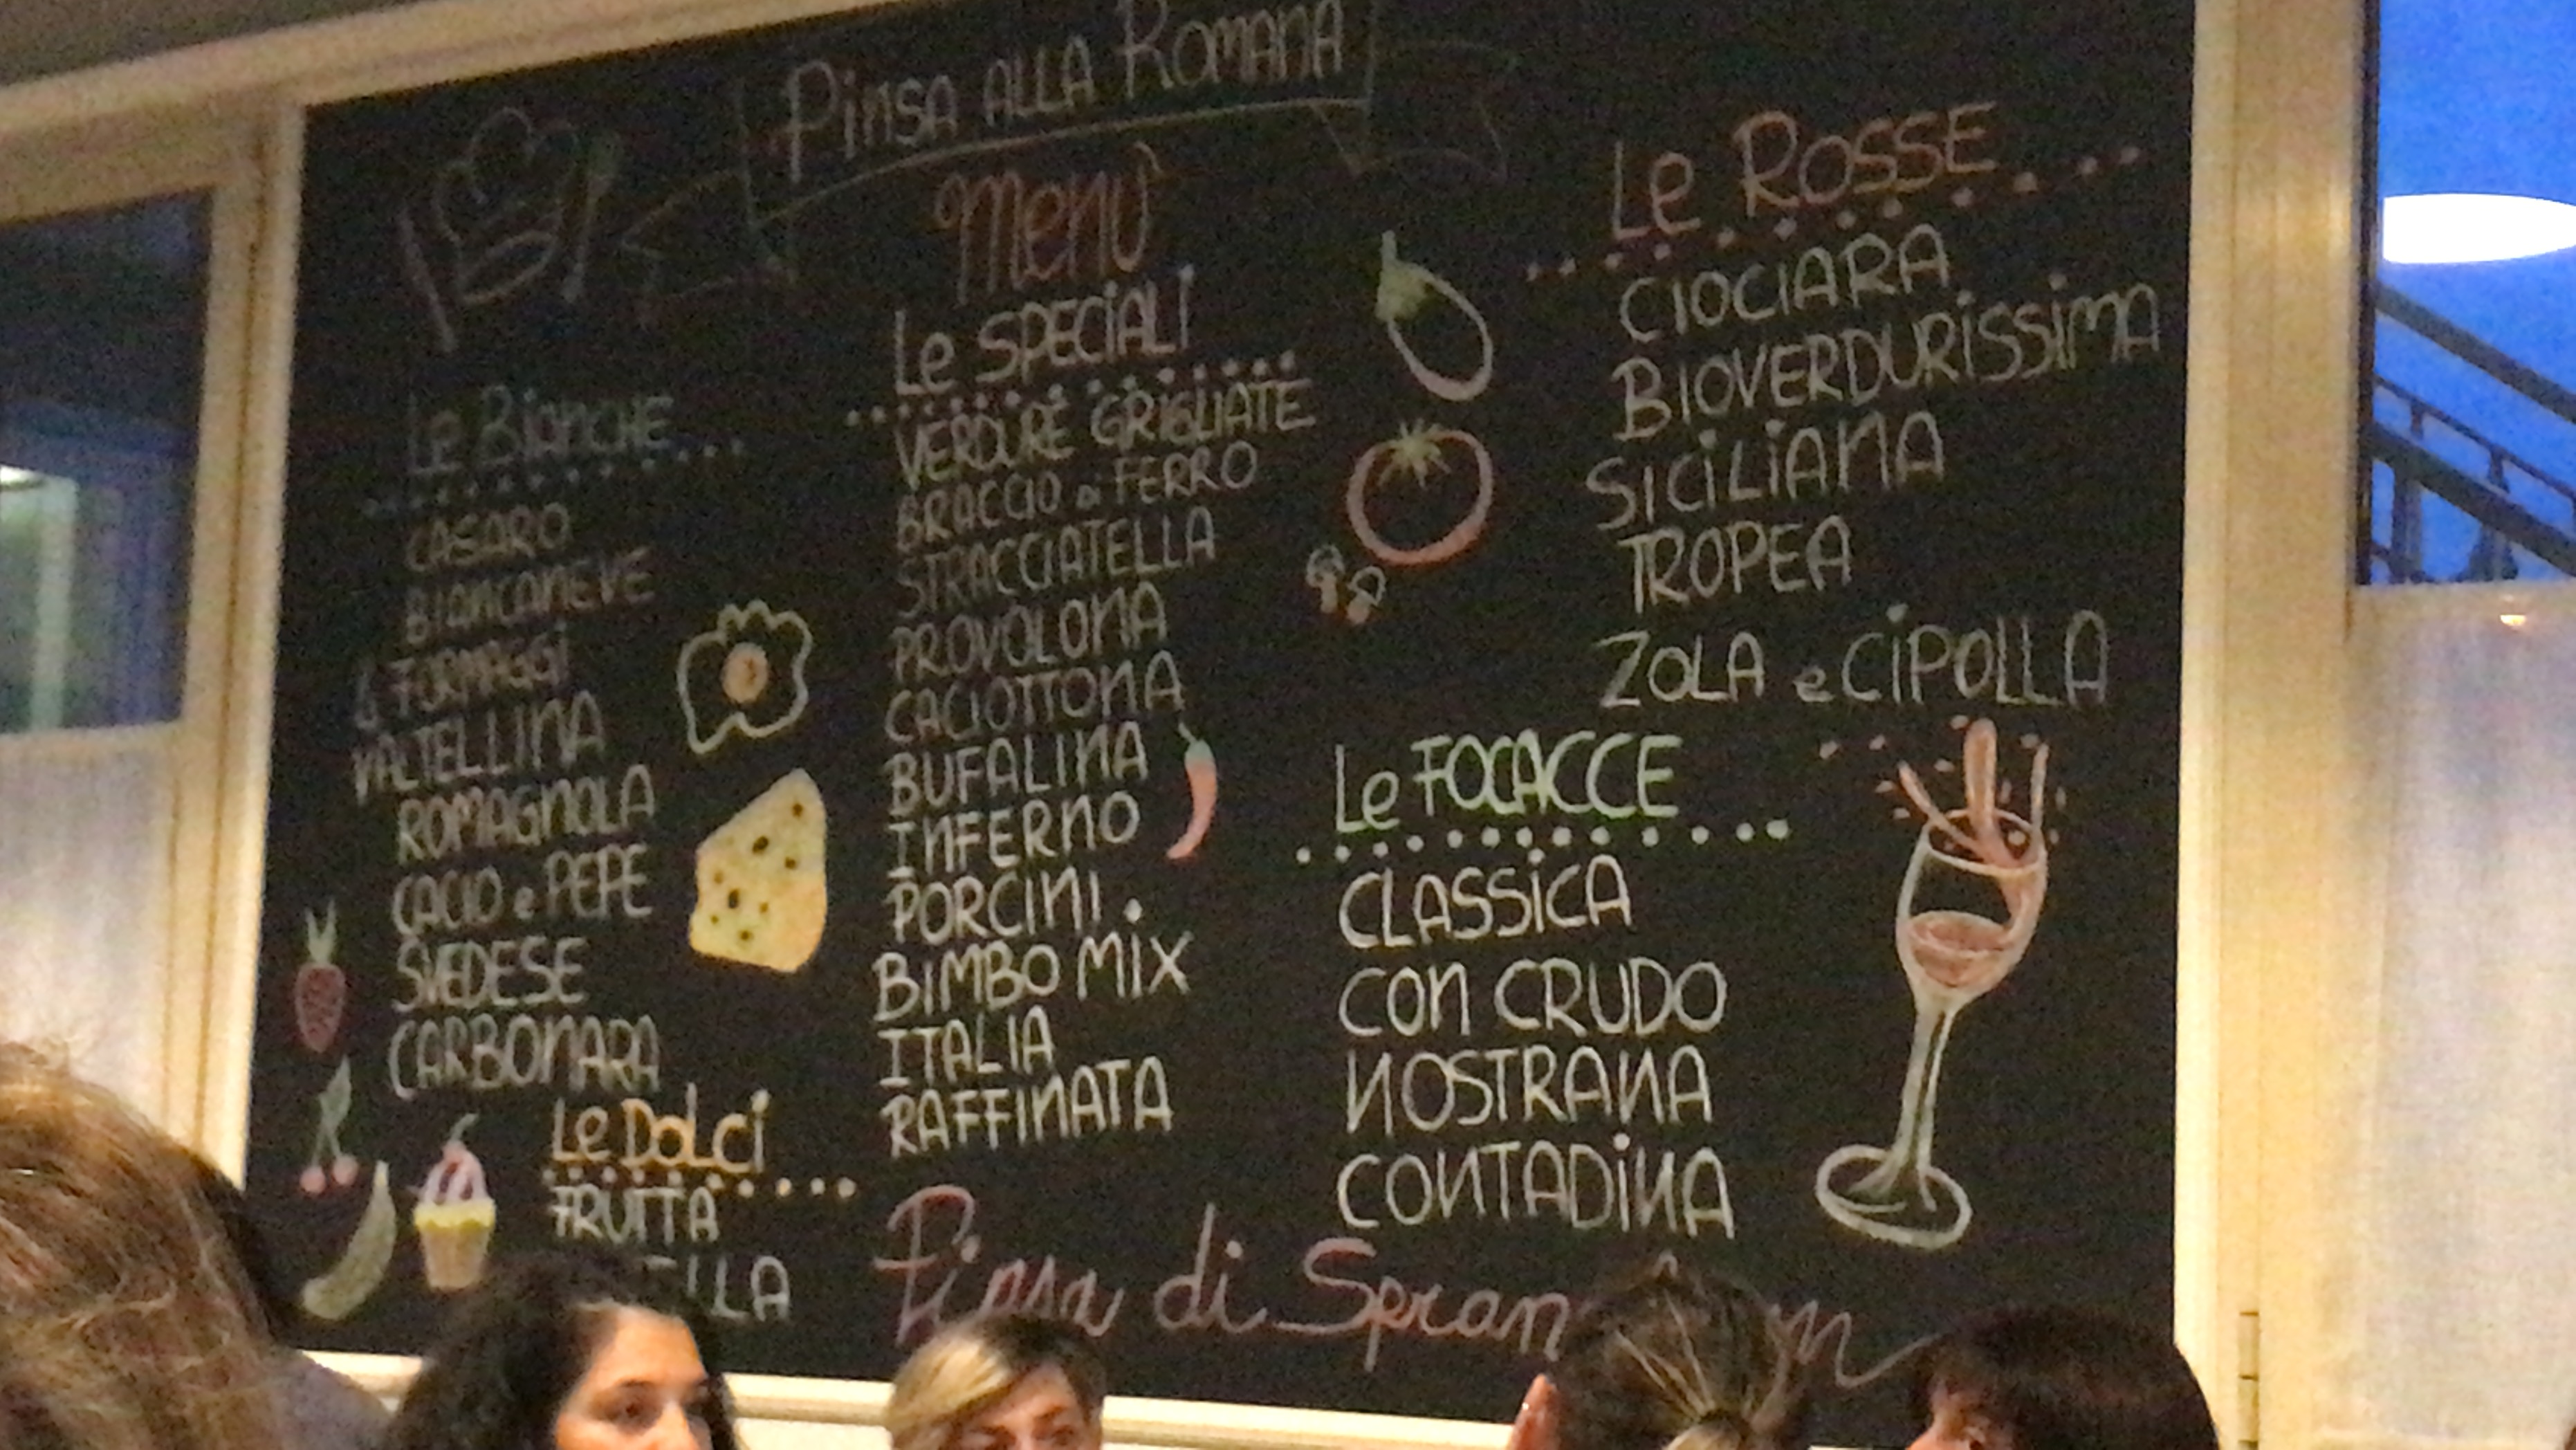 Pinsa alla Romana
Menù
Le Bianche
CASARO
BIANCANEVE
4 FORMAGGI
VALTELLINA
ROMAGNOLA
CACIO e PEPE
SVEDESE
CARBONARA
Le Dolci
FRUTTA
Le SPECIALI
VERDURE GRIGLIATE
BRACCIO di FERRO
STRACCIATELLA
PROVOLONA
CACIOTTONA
BUFALINA
INFERNO
PORCINI
BIMBO MIX
ITALIA
RAFFINATA
Le ROSSE
CIOCIARA
BIOVERDURISSIMA
SICILIANA
TROPEA
ZOLA e CIPOLLA
Le FOCACCE
CLASSICA
CON CRUDO
NOSTRANA
CONTADINA
Pinsa di